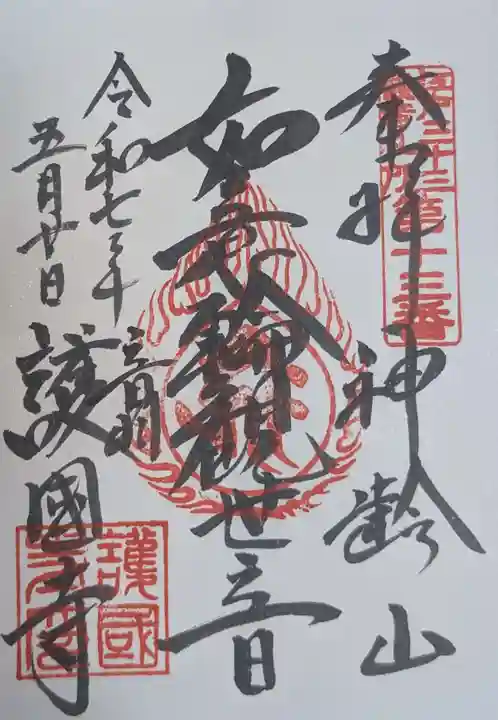 奉拝 神齢山
如意輪観世音
令和七年
五月廿日
護國寺
第十三番
護國